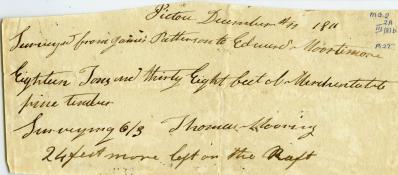 Pictou December 11 1811
Survey'd from James Patterson to Edward Moortimore
Eighteen Tons and thirty Eight feet of Merchentable
pine timber
Surveying 6/3 Thomas Mooring
24 feet more left on the Raft
MG 2
2A